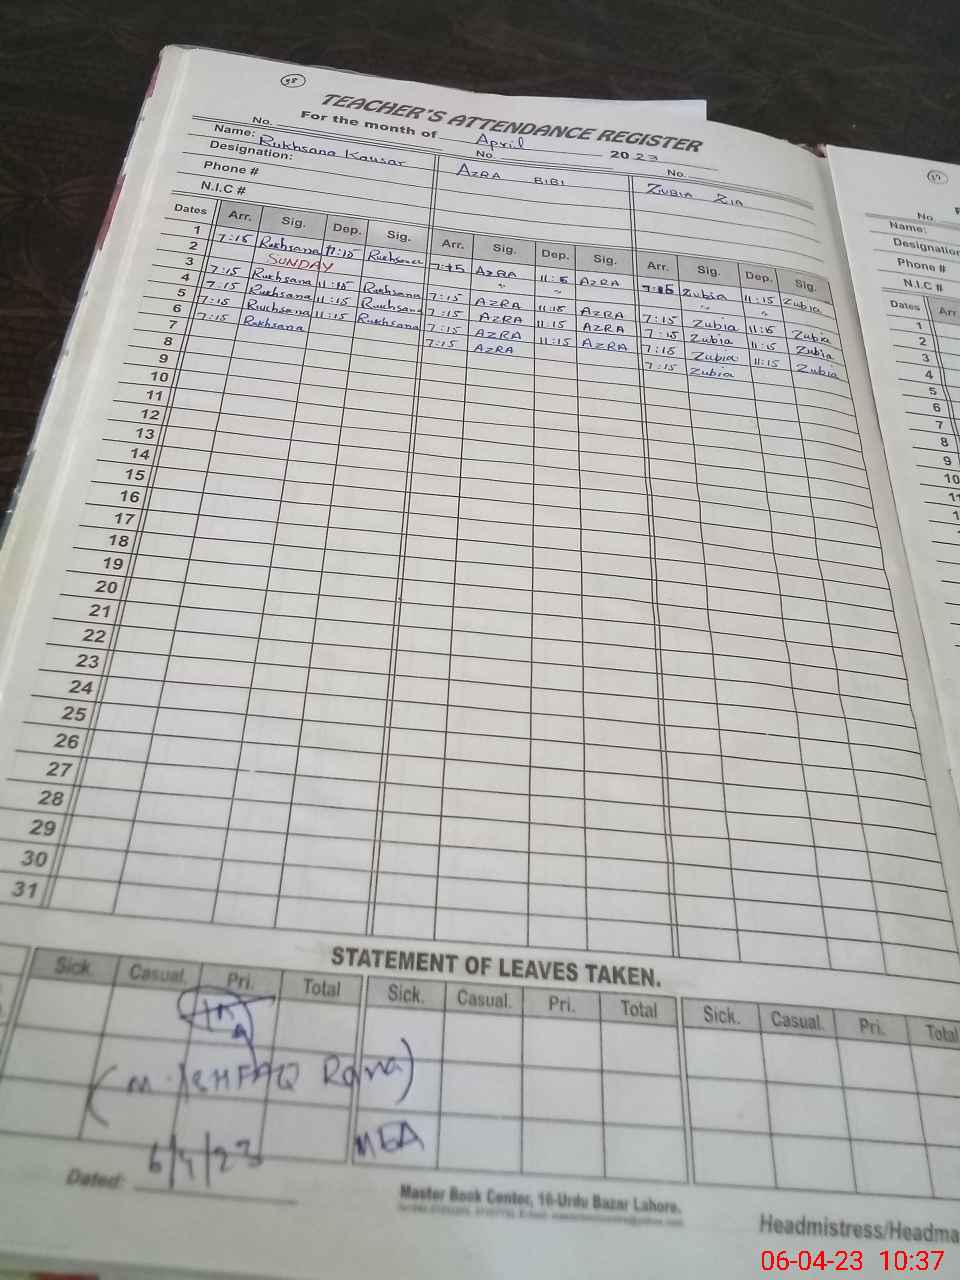 48
TEACHER'S ATTENDANCE REGISTER
For the month of April 2023
No. No. No.
Name: Rukhsana Kausar AZRA BIBI ZUBIA ZIA
Designation:
Phone #
N.I.C #
Dates Arr. Sig. Dep. Sig. Arr. Sig. Dep. Sig. Arr. Sig. Dep. Sig.
1 7:15 Rukhsana 11:15 Rukhsana 7:15 AZRA 11:15 AZRA 7:15 Zubia 11:15 Zubia
2 SUNDAY " " " "
3 7:15 Rukhsana 11:15 Rukhsana 7:15 AZRA 11:15 AZRA 7:15 Zubia 11:15 Zubia
4 7:15 Rukhsana 11:15 Rukhsana 7:15 AZRA 11:15 AZRA 7:15 Zubia 11:15 Zubia
5 7:15 Rukhsana 11:15 Rukhsana 7:15 AZRA 11:15 AZRA 7:15 Zubia 11:15 Zubia
6 7:15 Rukhsana 7:15 AZRA 7:15 Zubia
7
8
9
10
11
12
13
14
15
16
17
18
19
20
21
22
23
24
25
26
27
28
29
30
31
STATEMENT OF LEAVES TAKEN.
Sick. Casual. Pri. Total Sick. Casual. Pri. Total Sick. Casual. Pri. Total
(M. ISHFAQ Rana)
MEA
6/4/23
Dated:
Master Book Center, 16-Urdu Bazar Lahore.
Headmistress/Headma
No.
Name:
Designation
Phone #
N.I.C #
Dates Arr
1
2
3
4
5
6
7
8
9
10
06-04-23 10:37